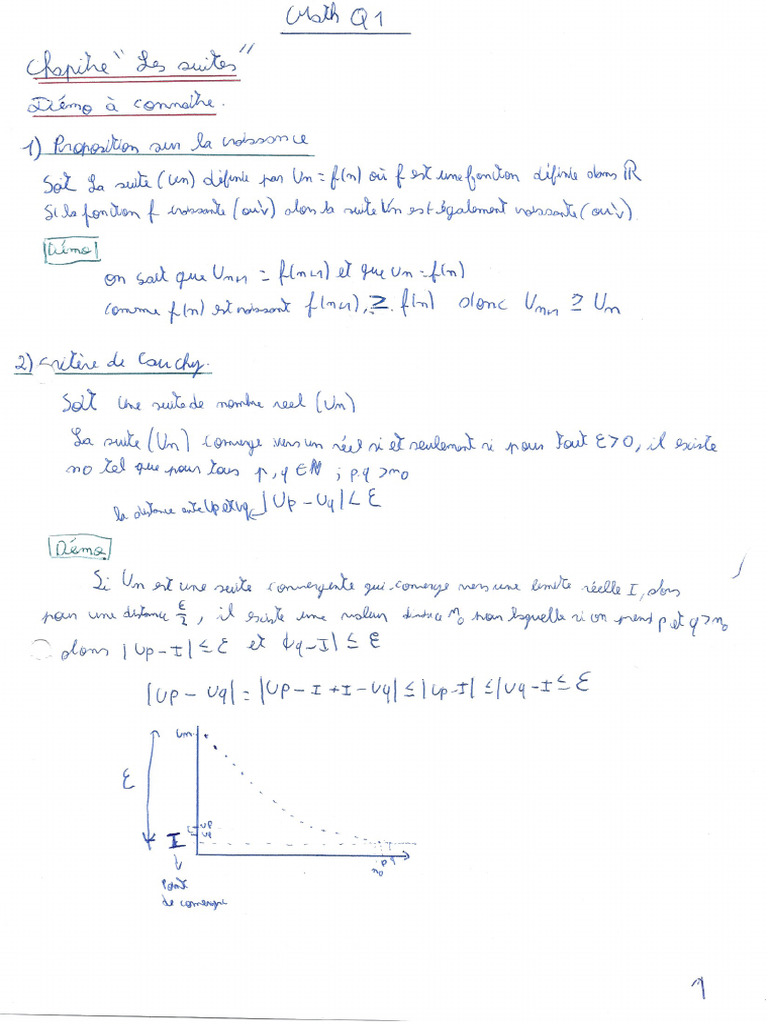 Math Q1
Chapitre "Les suites"
Démo à connaitre.
1) Proposition sur la croissance
Soit La suite (Un) définie par Un = f(n) où f est une fonction définie dans ℝ
Si la fonction f croissante (ou ↘) alors la suite Un est également croissante (ou ↘)
Démo
on sait que Un+1 = f(n+1) et que Un = f(n)
comme f(n) est croissant f(n+1) ≥ f(n) donc Un+1 ≥ Un
2) Critère de Cauchy.
Soit une suite de nombre reel (Un)
La suite (Un) converge vers un réel si et seulement si pour tout ε>0, il existe
no tel que pour tous p, q ∈ ℕ ; p.q > no
la distance entre Up et Uq |Up - Uq| < ε
Démo
Si Un est une suite convergente qui converge vers une limite réelle I, alors
pour une distance ε/2, il existe une valeur no pour laquelle si on prend p et q > no
alors |Up - I| ≤ ε et |Uq - I| ≤ ε
|Up - Uq| = |Up - I + I - Uq| ≤ |Up - I| ≤ |Uq - I ≤ ε
Un
ε
Up
Uq
I
p q
no
Point
de convergence
1